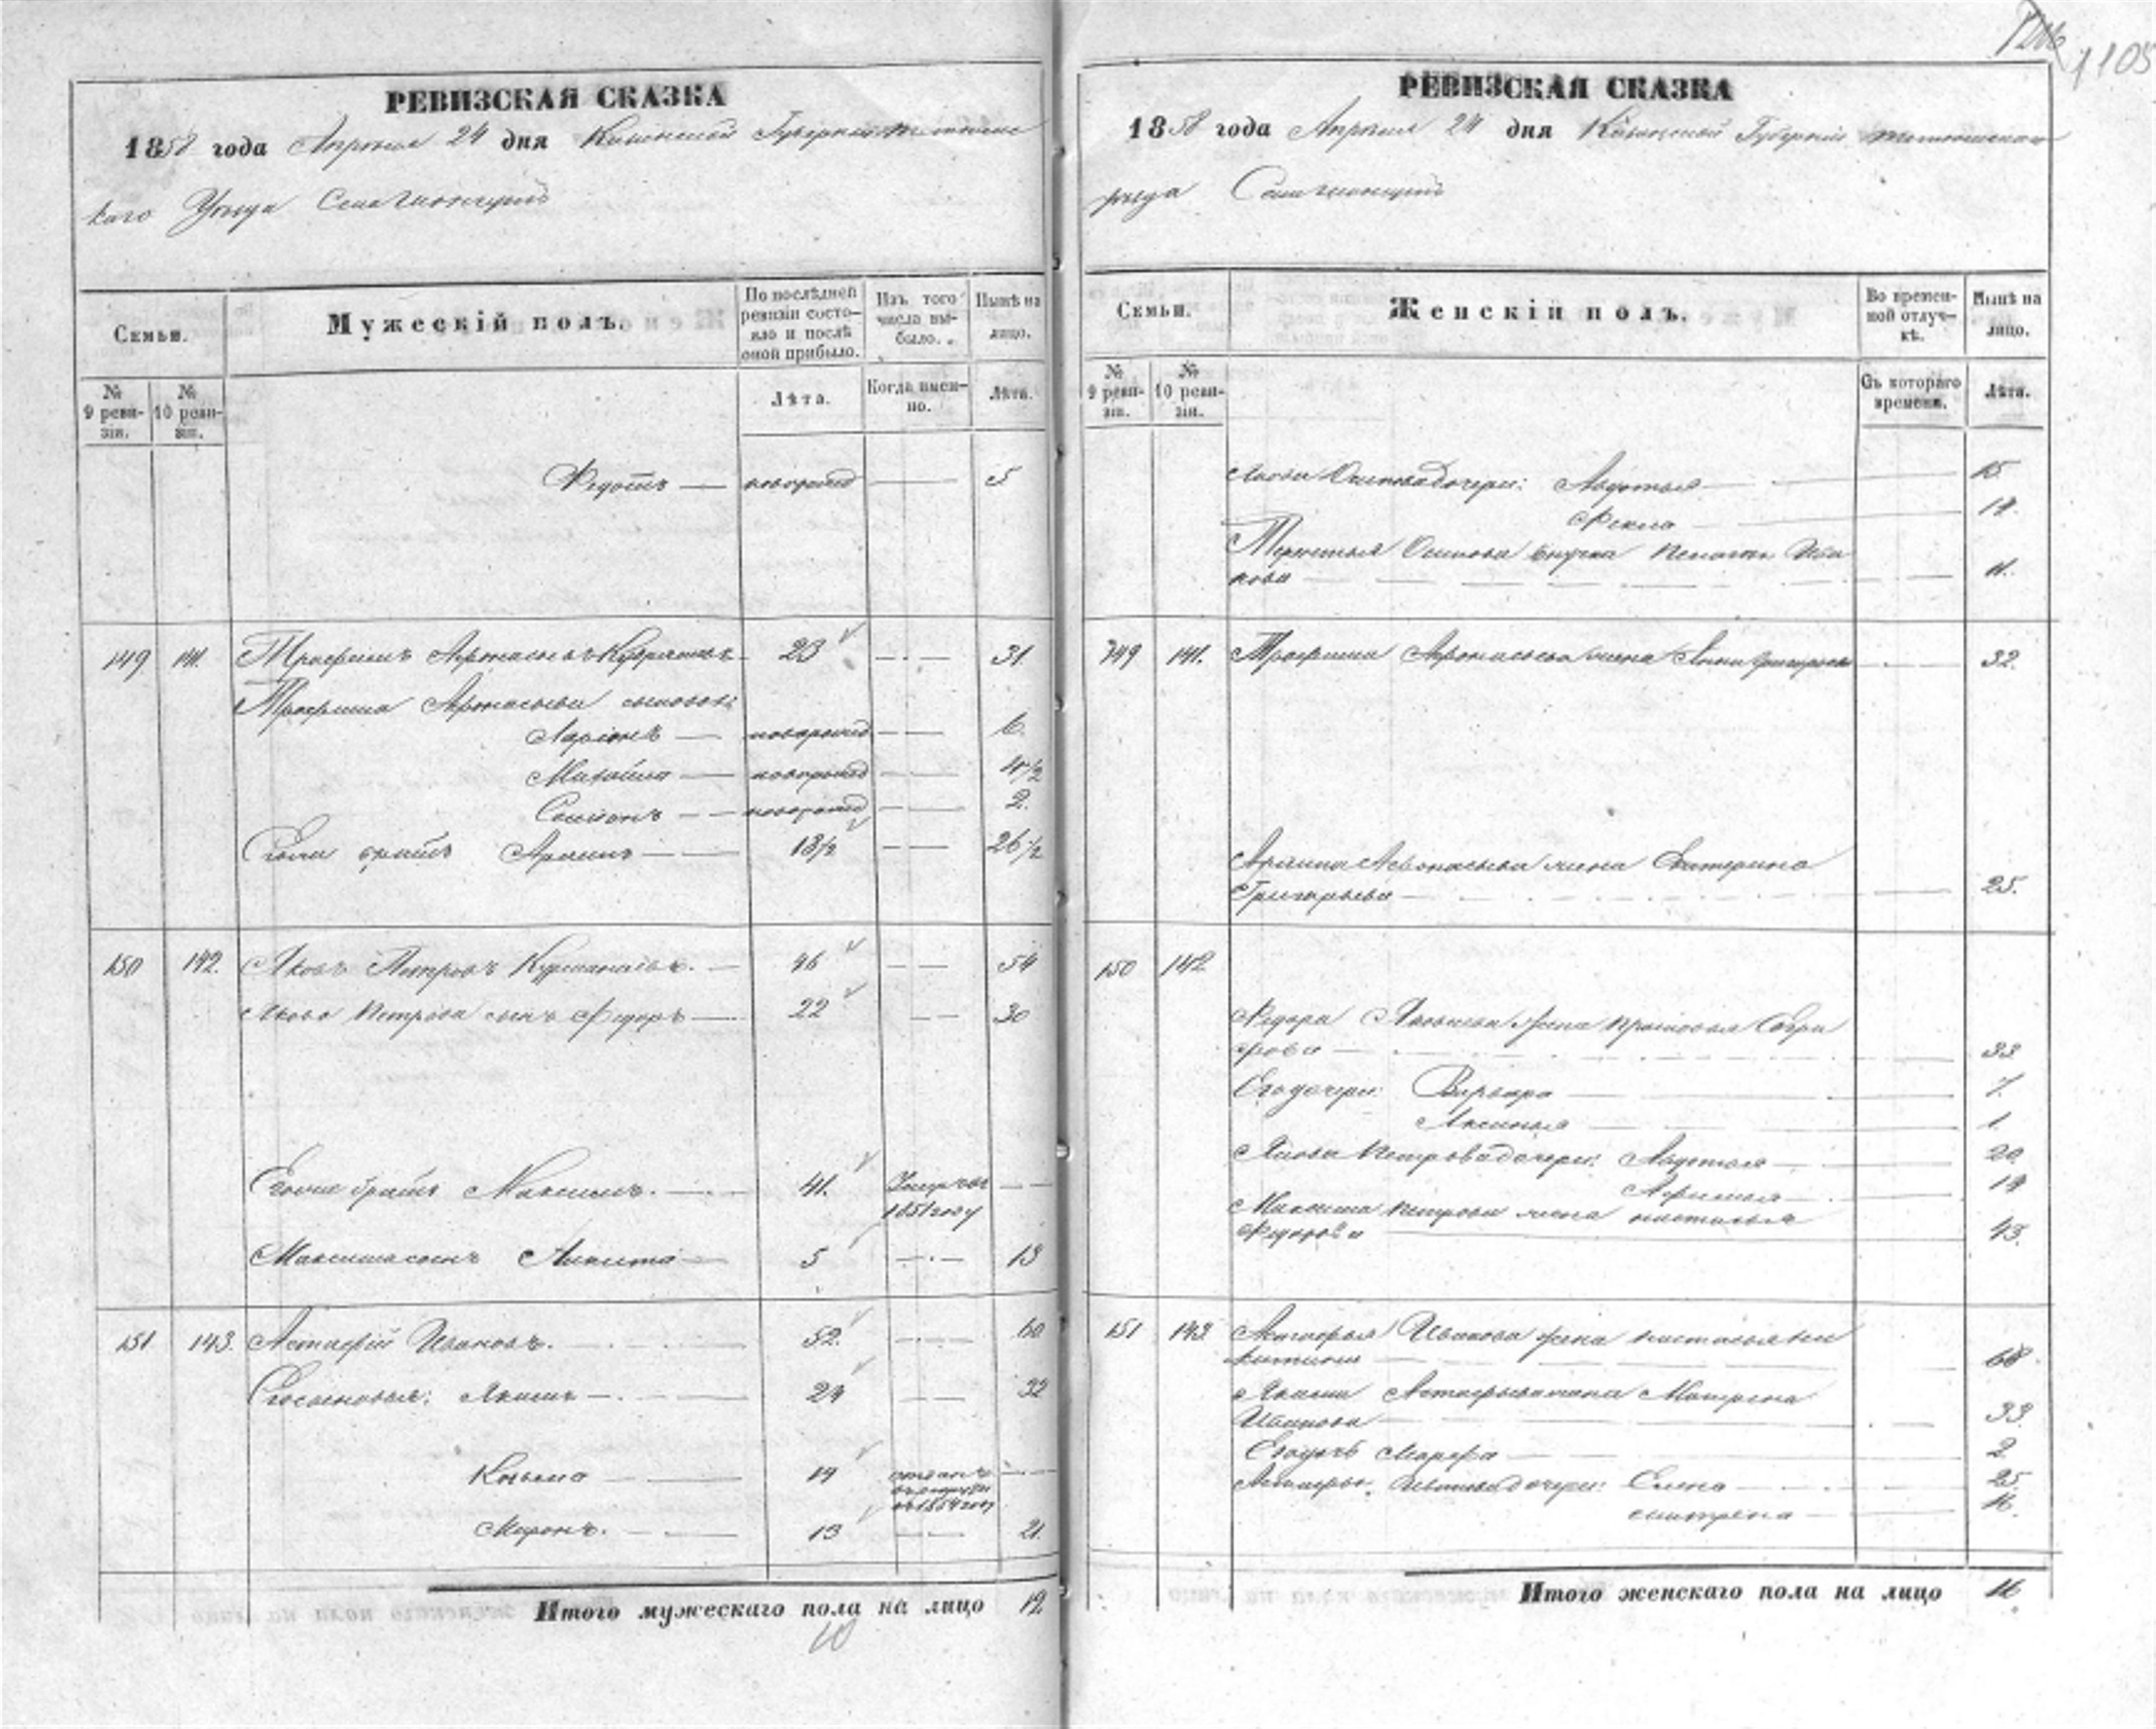 1206
1105
РЕВИЗСКАЯ СКАЗКА
1858 года Апреля 24 дня Казанской Губернии
каго Уезда
Семьи.
Мужескій полъ.
По послѣдней ревизіи состо-
яло и послѣ
оной прибыло.
Изъ того
числа вы-
было.
Нынѣ на
лицо.
№
9 реви-
зіи.
№
10 реви-
зіи.
Лѣта.
Когда имен-
но.
Лѣта.
Федотъ — новорожд — 5
149 141. Трофимъ Афонасьевъ 23 31.
Трофима Афонасьева сыновья:
Ларіонъ — новорожд — 6.
Михайла — новорожд — 4 1/2
Семіонъ — новорожд — 2.
братъ 18 1/2 — 26 1/2
150 142. Яковъ Петровъ 46 — 54
Якова Петрова сынъ Федоръ — 22 — 30
братъ Максимъ. 41. Умеръ въ
1851 году
Максима сынъ Никита 5 — 13
151 143. Астафій Ивановъ. 52. 60
Его сыновья: Якимъ — 24 — 32
Козьма — 19 отданъ
въ рекруты
въ 1854 году
Миронъ. 13 — 21.
Итого мужескаго пола на лицо 12
10
РЕВИЗСКАЯ СКАЗКА
1858 года Апреля 24 дня Казанской Губерніи
уезда
Семьи.
Женскій полъ.
Во времен-
ной отлуч-
кѣ.
Нынѣ на
лицо.
№
9 реви-
зіи.
№
10 реви-
зіи.
Съ котораго
времени.
Лѣта.
Осипова дочери: Авдотья — 15
Фекла
Осипова внучка Ива
нова 11.
149 141. Трофима Афонасьева жена Анна Григорьева 32.
Афонасьева жена Катерина
Григорьева — 25.
150 142
Федора Яковлева жена Прасковья
33
Его дочери: Варвара 7.
Аксинья 1
Якова Петрова дочери: Авдотья 20
Афимья 19
Максима Петрова жена Настасья
Федорова 43.
151 143. Астафья Иванова жена Настасья Ни
китина 68
Якима Астафьева жена Матрена
Иванова 33.
Его дочь Марфа 2
Астафья Иванова дочери: Елена 25.
Матрена 16.
Итого женскаго пола на лицо 16.